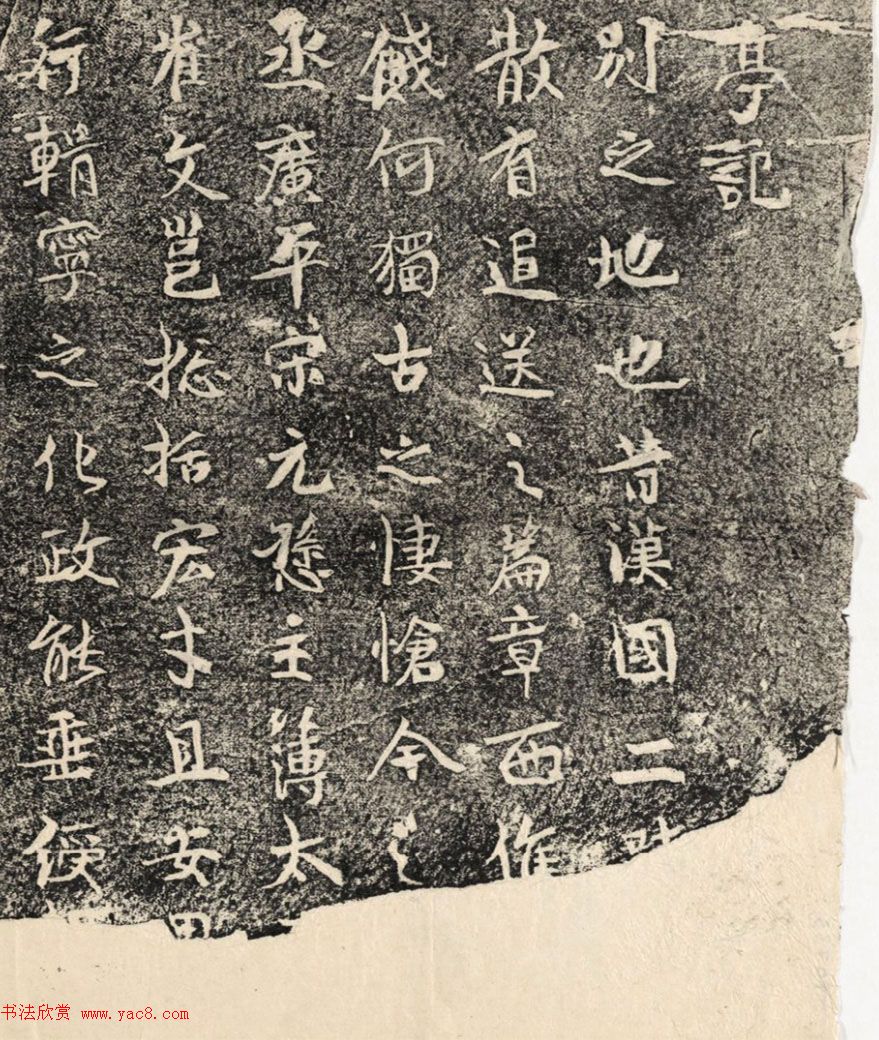 亭記
別之地也昔漢國二
散有追送之篇章西作
餞何獨古之悽愴今之
丞廣平宋元愻主薄太
崔文邕摠括宏才且安
行輯寧之化政能垂
书法欣赏 www.yac8.com